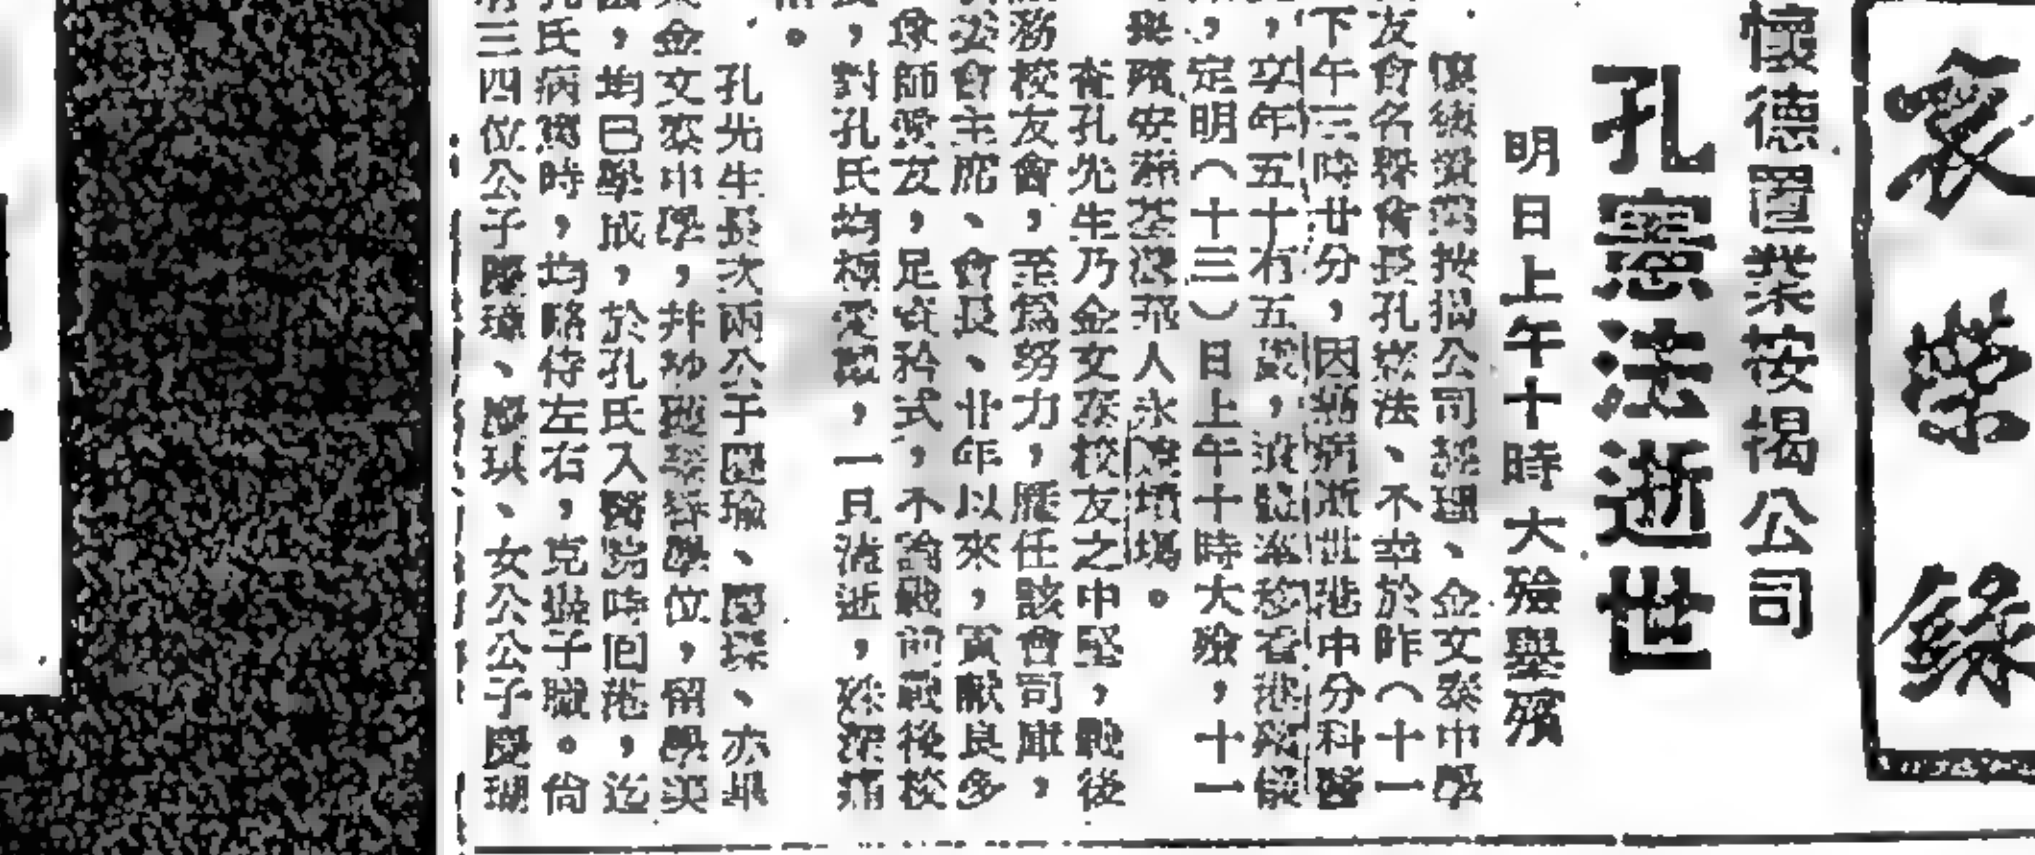 哀榮錄
懷德置業按揭公司
孔憲法逝世
明日上午十時大殮舉殯
懷德置業按揭公司經理、金文泰中學
友會名譽會長孔憲法、不幸於昨(十一
下午三時廿分，因病逝世港中分科醫
，享年五十有五歲，遺體奉移香港殯儀
，定明(十三)日上午十時大殮，十一
舉殯安葬荃灣飛人永遠墳塲。
查孔先生乃金文泰校友之中堅，戰後
務校友會，至爲努力，歷任該會司庫，
委會主席、會長、廿年以來，貢獻良多
尊師愛友，足資矜式，不論戰前戰後校
，對孔氏均極愛戴，一旦溘逝，殊深痛
。
孔先生長次兩公子慶瑜、慶琛、亦畢
金文泰中學，并考獲學位，留學英
，均已學成，於孔氏入醫院時回港，迄
孔氏病篤時，均隨侍左右，克盡子職。尙
三四位公子慶璋、慶琪、女公公子慶瑚